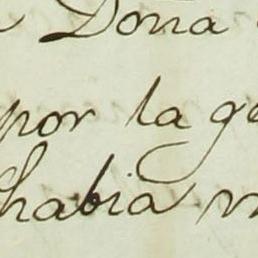 Doña
por la
habia